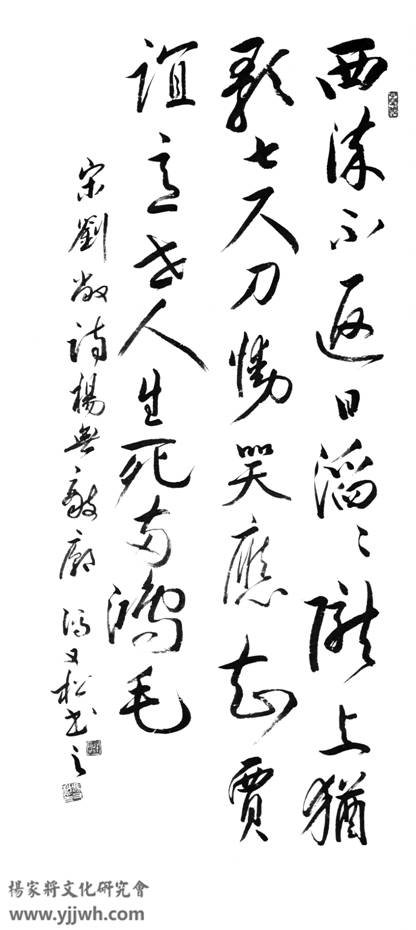 西流不返日滔〻隴上猶
歌七尺刀慟哭應知賈
誼意世人生死兩鴻毛
宋劉敞詩楊無敵廟 馮又松書之
楊家將文化研究會
www.yjjwh.com